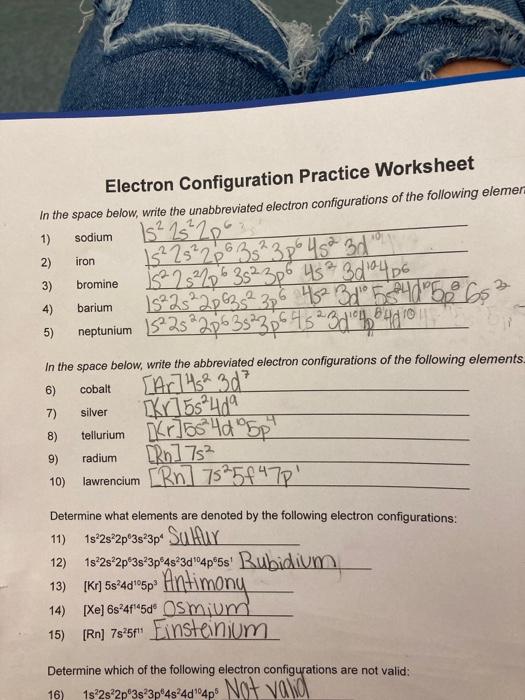 Electron Configuration Practice Worksheet
In the space below, write the unabbreviated electron configurations of the following
1) sodium 1s² 2s² 2p⁶
2) iron 1s² 2s² 2p⁶ 3s² 3p⁶ 4s² 3d¹⁰
3) bromine 1s² 2s² 2p⁶ 3s² 3p⁶ 4s² 3d¹⁰ 4p⁶
4) barium 1s² 2s² 2p⁶ 3s² 3p⁶ 4s² 3d¹⁰ 4d¹⁰ 6s²
5) neptunium 1s² 2s² 2p⁶ 3s² 3p⁶ 4s² 3d¹⁰ 4d¹⁰
In the space below, write the abbreviated electron configurations of the following elements.
6) cobalt [Ar] 4s² 3d⁷
7) silver [Kr] 5s² 4d⁹
8) tellurium [Kr] 5s² 4d¹⁰ 5p⁴
9) radium [Rn] 7s²
10) lawrencium [Rn] 7s² 5f¹⁴ 7p¹
Determine what elements are denoted by the following electron configurations:
11) 1s²2s²2p⁶3s²3p⁴ Sulfur
12) 1s²2s²2p⁶3s²3p⁶4s²3d¹⁰4p⁶5s¹ Rubidium
13) [Kr] 5s²4d¹⁰5p³ Antimony
14) [Xe] 6s²4f¹⁴5d⁶ Osmium
15) [Rn] 7s²5f¹¹ Einsteinium
Determine which of the following electron configurations are not valid:
16) 1s²2s²2p⁶3s²3p⁶4s²4d¹⁰4p⁵ Not valid